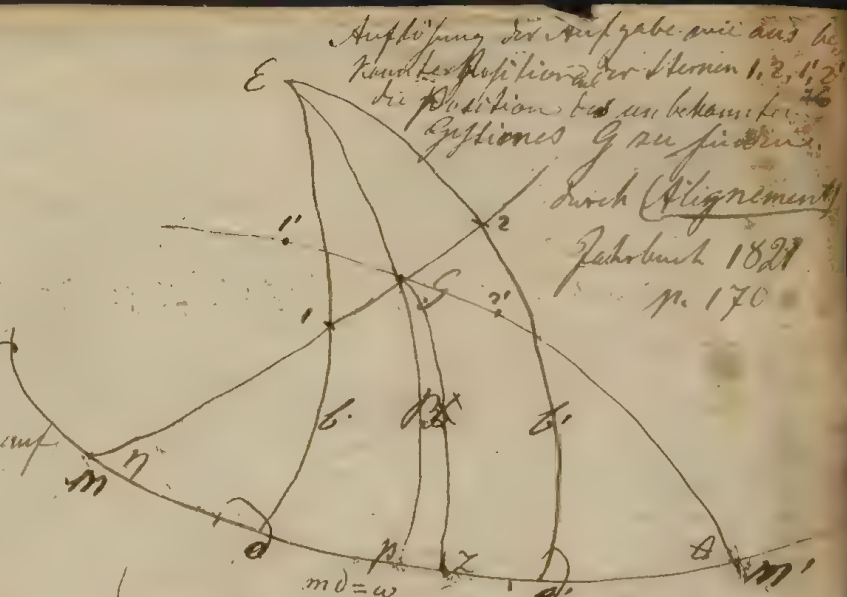 Auflösung der Aufgabe wie aus be
kannter Position der Sternen 1, 2, 1', 2'
die Position des unbekannten
Gestirnes G zu finden.
durch (Alignement)
Jahrbuch 1821
p. 170
E
1'
2
G
1
2'
b
b'
auf
m
η
a
p
Z
a'
m'